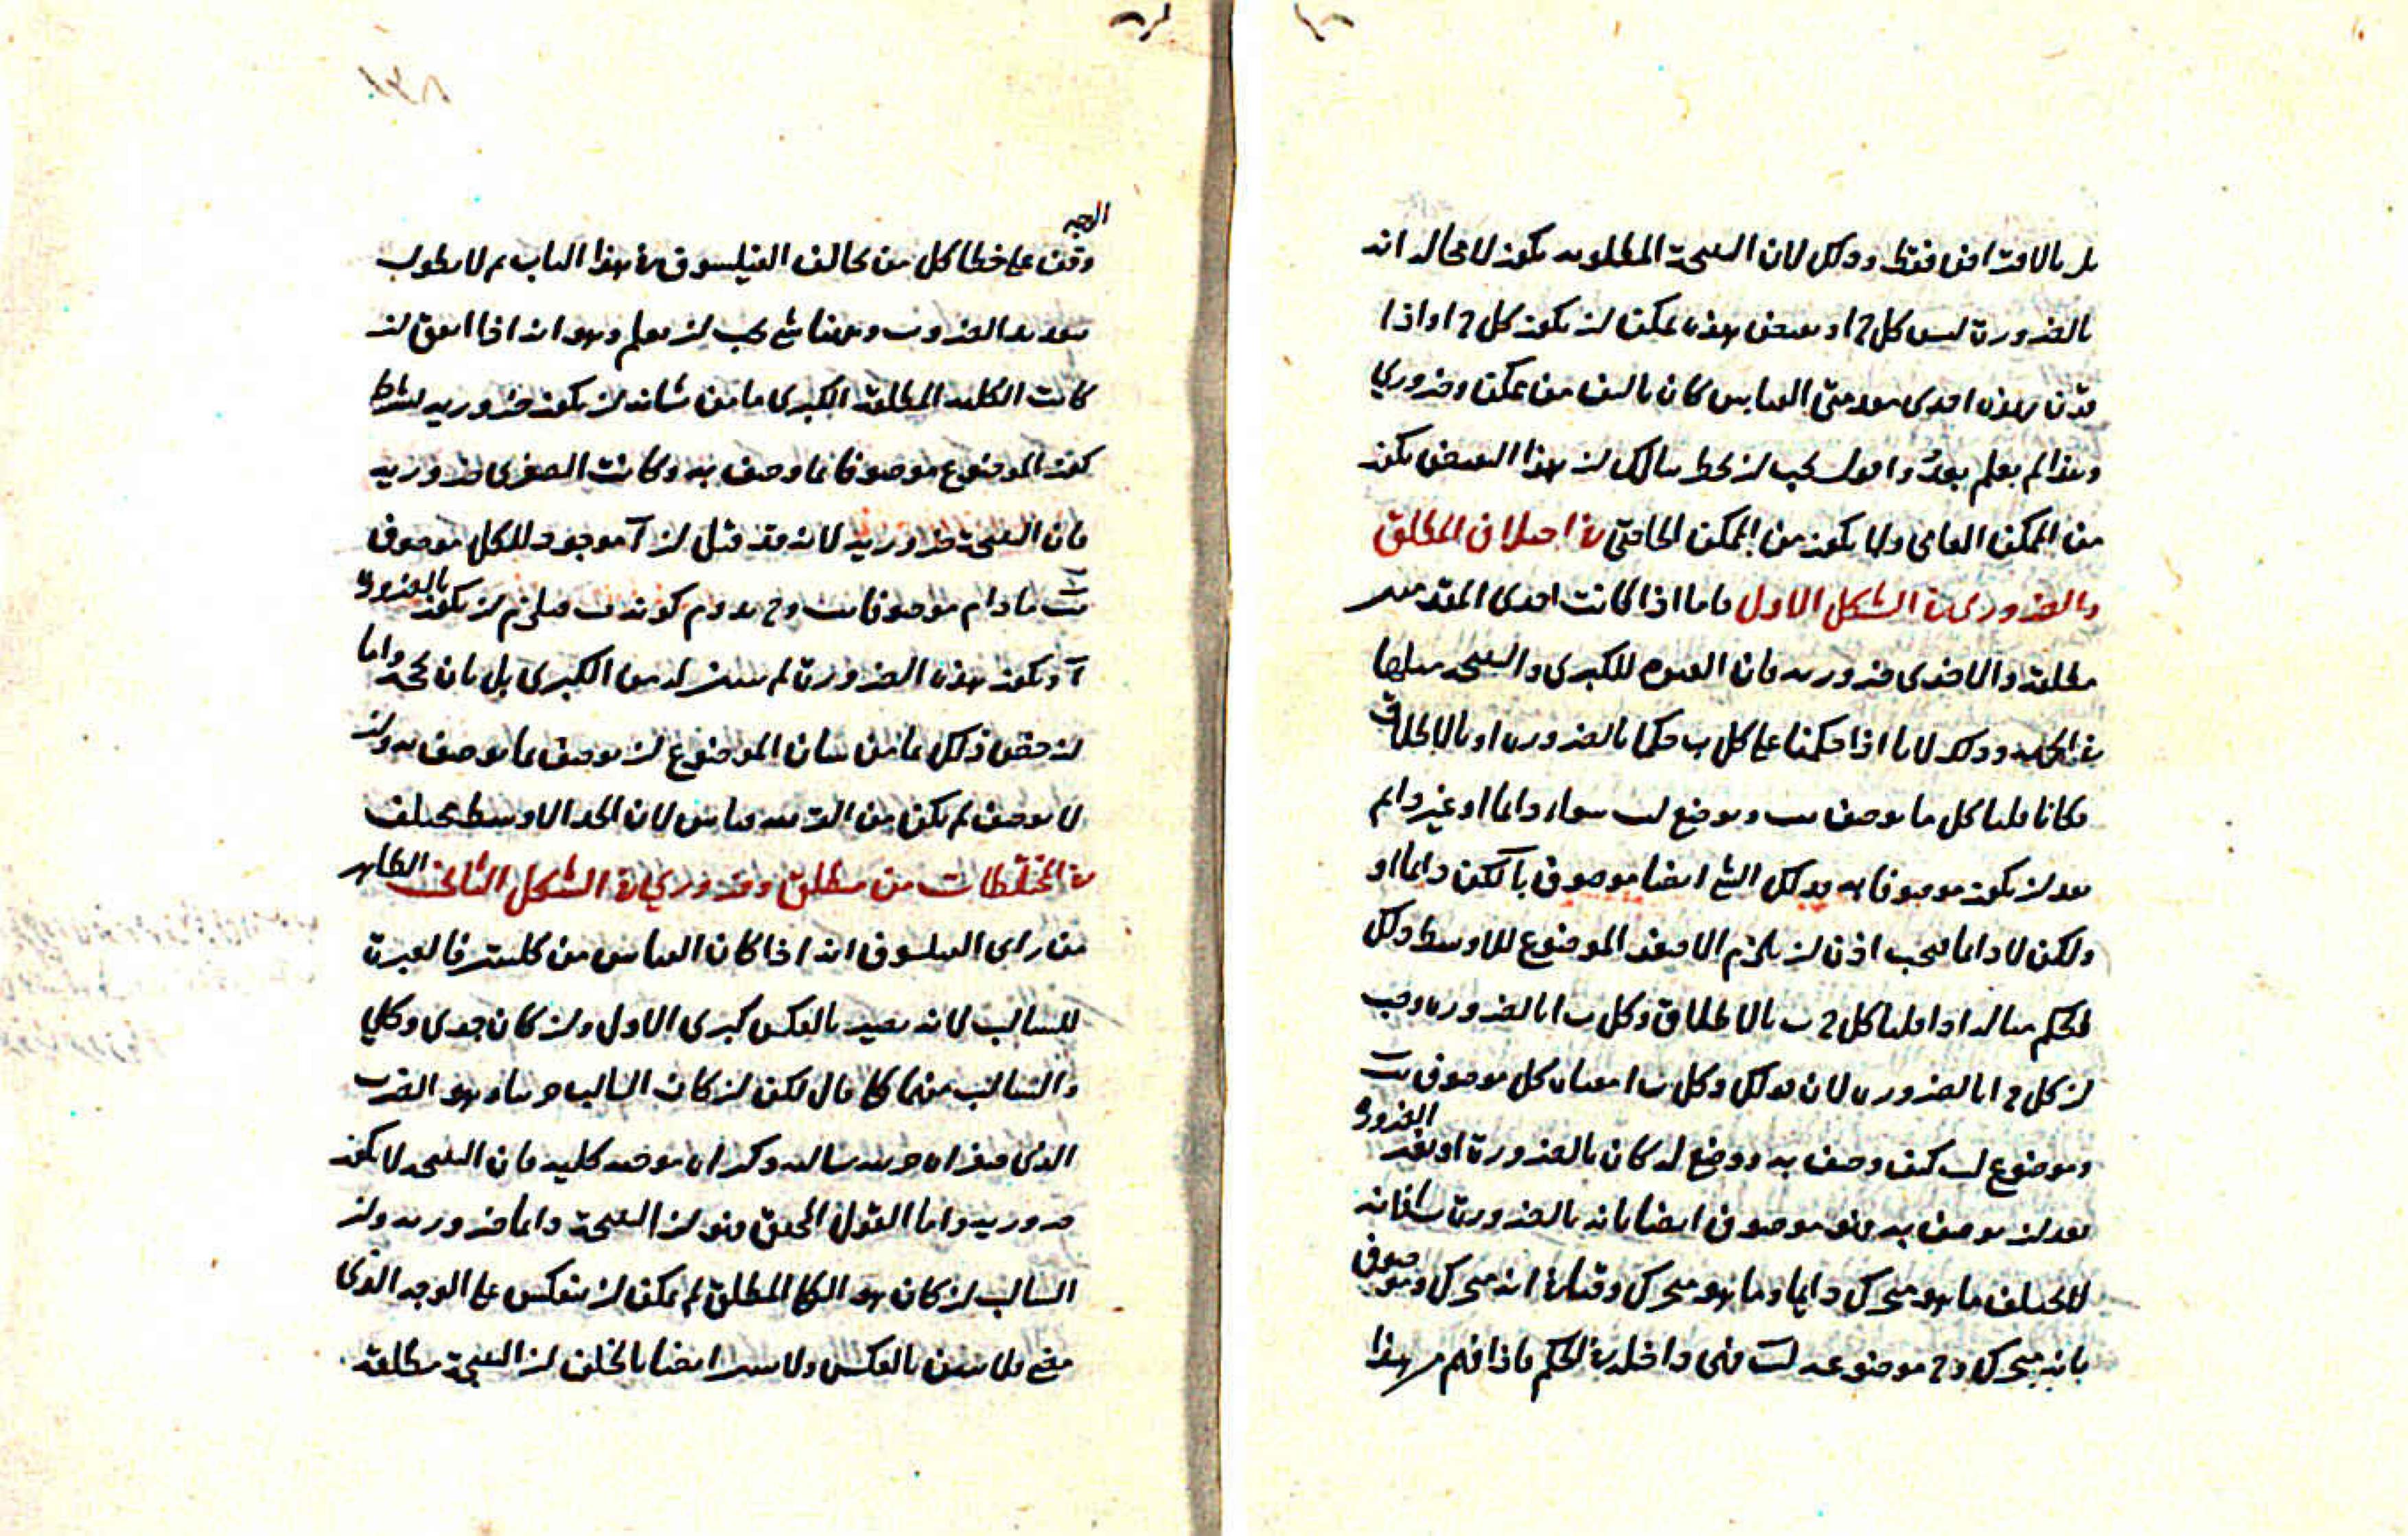 بل بالافتراض فقط وذلك لان النتيجة المطلوبه تكون لا محاله انه
بالضرورة ليس كل ج ا وبعض هذه يمكن ان يكون كل ج ا واذا
قرن بهذه احدى مقدمتي القياس كان تاليف من ممكن وضروري
وهذا لم يعلم بعد واقول يجب ان يخطر ببالك ان هذا البعض يكون
من الممكن العامي ولا يكون من الممكن الخاصي في اختلاط المطلق
والضروري في الشكل الاول فاما اذا كانت احدى المقدمتين
مطلقة والاخرى ضروريه فان العبرة للكبرى والنتيجه مثلها
في الجهه وذلك لانا اذا حكمنا على كل ب حكما بالضروره او بالاطلاق
فكانا قلنا كل ما يوصف بب ويوضع لب سواء دائما او غير دايم
بعد ان يكون موصوفا به فذلك الشئ ايضا موصوف بآ لكن دائما او
ولكن لا دايما فيجب اذن ان يلزم الاصغر الموضوع للاوسط ذلك
الحكم مثاله اذا قلنا كل ج ب بالاطلاق وكل ب ا بالضروره وجب
ان كل ج ا بالضروره لان قولك وكل ب ا معناه كل موصوف بب
وموضوع لب كيف وصف به ووضع له كان بالضرورة او بغير الضرورة
بعد ان يوصف به فهو موصوف ايضا بانه بالضرورة ا فانه
لا يختلف ما هو متحرك دايما وما هو متحرك وقتا في انه متحرك وموصوف
بانه متحرك و ج موضوعه لب فهي داخله في الحكم فاذا فهم هذا
الوجه
وقف على خطا كل من خالف الفيلسوف في هذا الباب ثم لا نطول
بتعديد الضروب وههنا شئ يجب ان يعلم وهو انه اذا اتفق ان
كانت الكليه المطلقة الكبرى ما من شانه ان يكون ضروريه بشرط
كون الموضوع موصوفا بما وصف به وكانت الصغرى ضروريه
فان النتيجة ضروريه لانه قد قيل ان آ موجود لكل موصوف
بب ما دام موصوفا بب و ج يدوم كونه ب فيلزم ان يكون بالضرورة
آ وتكون هذه الضرورة لم تبين له من الكبرى بل بان بحجه واما
ان خص ذلك بما من شان الموضوع ان يوصف بما يوصف به وان
لا يوصف لم يكن من الترتيب قياس لان الحد الاوسط يختلف
في المختلطات من مطلق وضروري في الشكل الثاني الظاهر
من راى الفيلسوف انه اذا كان القياس من كليتين فالعبرة
للسالب لانه يصير بالعكس كبرى الاول وان كان جزوى وكلي
والسالب منهما كما قال لكن ان كان السالب جزئيا وهو الضرب
الذى صغراه جزييه سالبه وكبراه موجبه كليه فان النتيجه لا تكون
ضروريه واما القول المحقق فهو ان النتيجة دايما ضروريه وان
السالب ان كان هو الكلي المطلق لم يمكن ان ينعكس على الوجه الذي
يقع فلا تبين بالعكس ولا تبين ايضا بالخلف ان النتيجة مطلقة